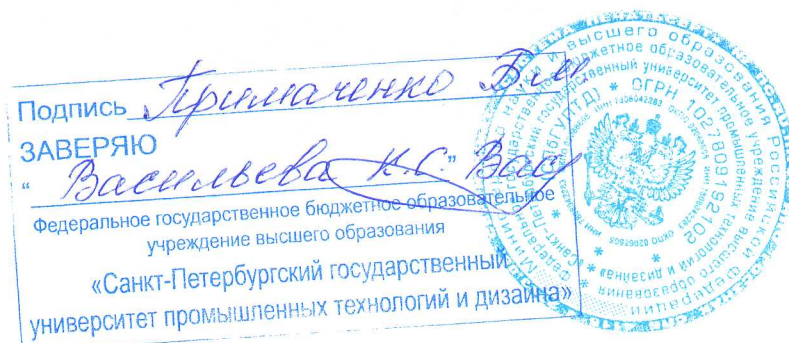 Подпись Примаченко Б.М.
ЗАВЕРЯЮ
"Васильева К.С." Вас
Федеральное государственное бюджетное образовательное
учреждение высшего образования
«Санкт-Петербургский государственный
университет промышленных технологий и дизайна»
высшего образования Российской Федерации
бюджетное образовательное учреждение высшего образования
государственный университет промышленных технологий и дизайна
* ОГРН 1027809192102 *